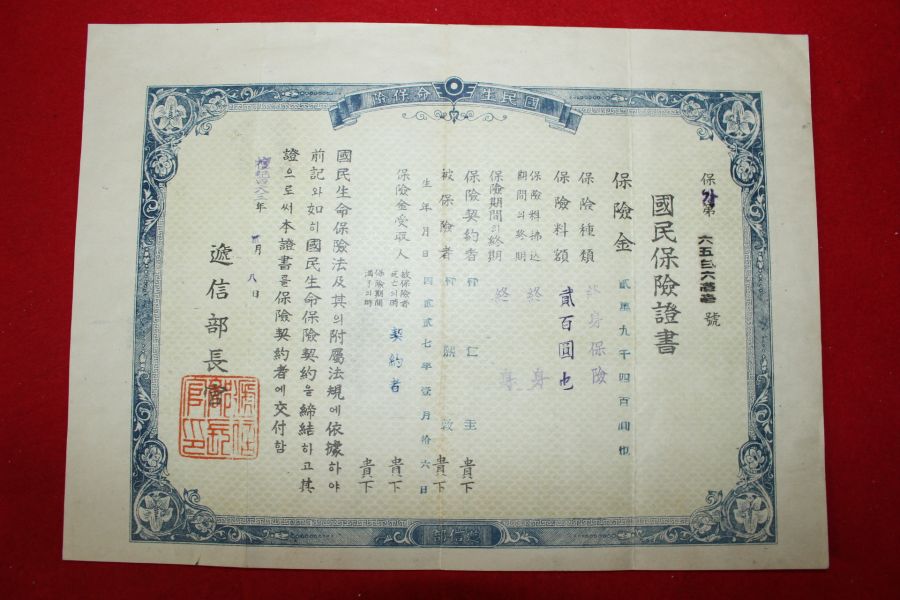 國民生命保險
保 第 六五 六 號
國民保險證書
保險金 貳萬九千四百圓也
保險種類 終身保險
保險料額 貳百圓也
保險料拂込期間의終期 終身
保險期間의終期 終身
保險契約者 仁圭 貴下
被保險者 敦 貴下
生年月日 四貳貳七年壹月拾六日
保險金受取人 被保險者死亡의時 契約者 貴下
保險期間滿了의時 貴下
國民生命保險法及其의附屬法規에依據하야
前記와如히國民生命保險契約을締結하고其
證으로써本證書를保險契約者에交付함
檀紀四二八 年 貳月八日
遞信部長官
遞信部長官印
遞信部